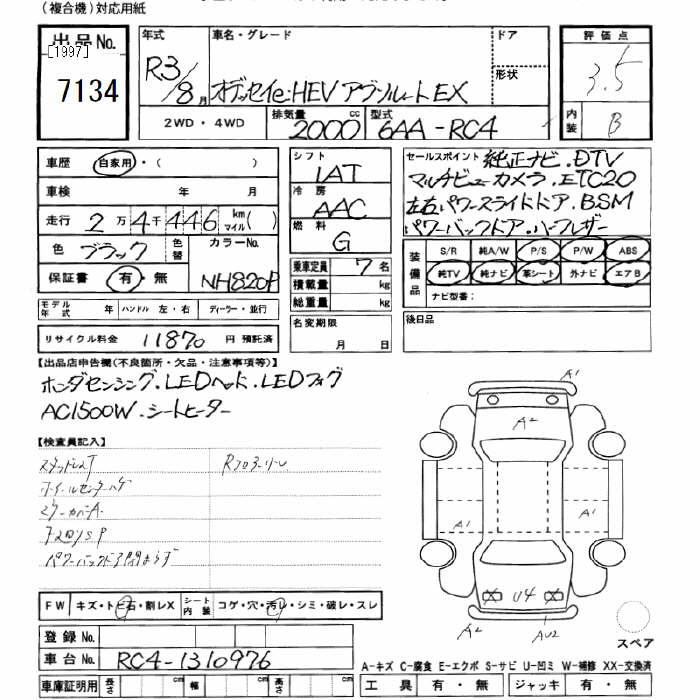 (複合機)対応用紙
出品No.
[1997]
7134
年式
R3/8月
車名・グレード
オデッセイe:HEV アブソルートEX
ドア
形状
評価点
3.5
内装
B
2WD・4WD
排気量
2000cc
型式
6AA-RC4
車歴 自家用・( )
車検 年 月
走行 2万4千446 km マイル( )
色 ブラック 色替 カラーNo.
NH820P
保証書 有・無
モデル年式 年 ハンドル 左・右 ディーラー・並行
リサイクル料金 11870 円 預託済
シフト
IAT
冷房
AAC
燃料
G
乗車定員 7名
積載量 kg
総重量 kg
名変期限
月 日
セールスポイント 純正ナビ.DTV
マルチビューカメラ.ETC20
左右パワースライドドア.BSM
パワーバックドア.ハーフレザー
装備品
S/R 純A/W P/S P/W ABS
純TV 純ナビ 革シート 外ナビ エアB
ナビ型番:
後日品
【出品店申告欄(不良箇所・欠品・注意事項等)】
ホンダセンシング.LEDヘッド.LEDフォグ
AC1500W.シートヒーター
【検査員記入】
パワーバックドア閉まらず
A1
A2
A1
A1
U4
A2
AU2
スペア
FW キズ・トビ石・割レX シート内装 コゲ・穴・汚レ・シミ・破レ・スレ
登録No.
車台No. RC4-1310976
車庫証明用 長さ cm 幅 cm 高さ cm
A-キズ C-腐食 E-エクボ S-サビ U-凹ミ W-補修 XX-交換済
工具 有・無 ジャッキ 有・無